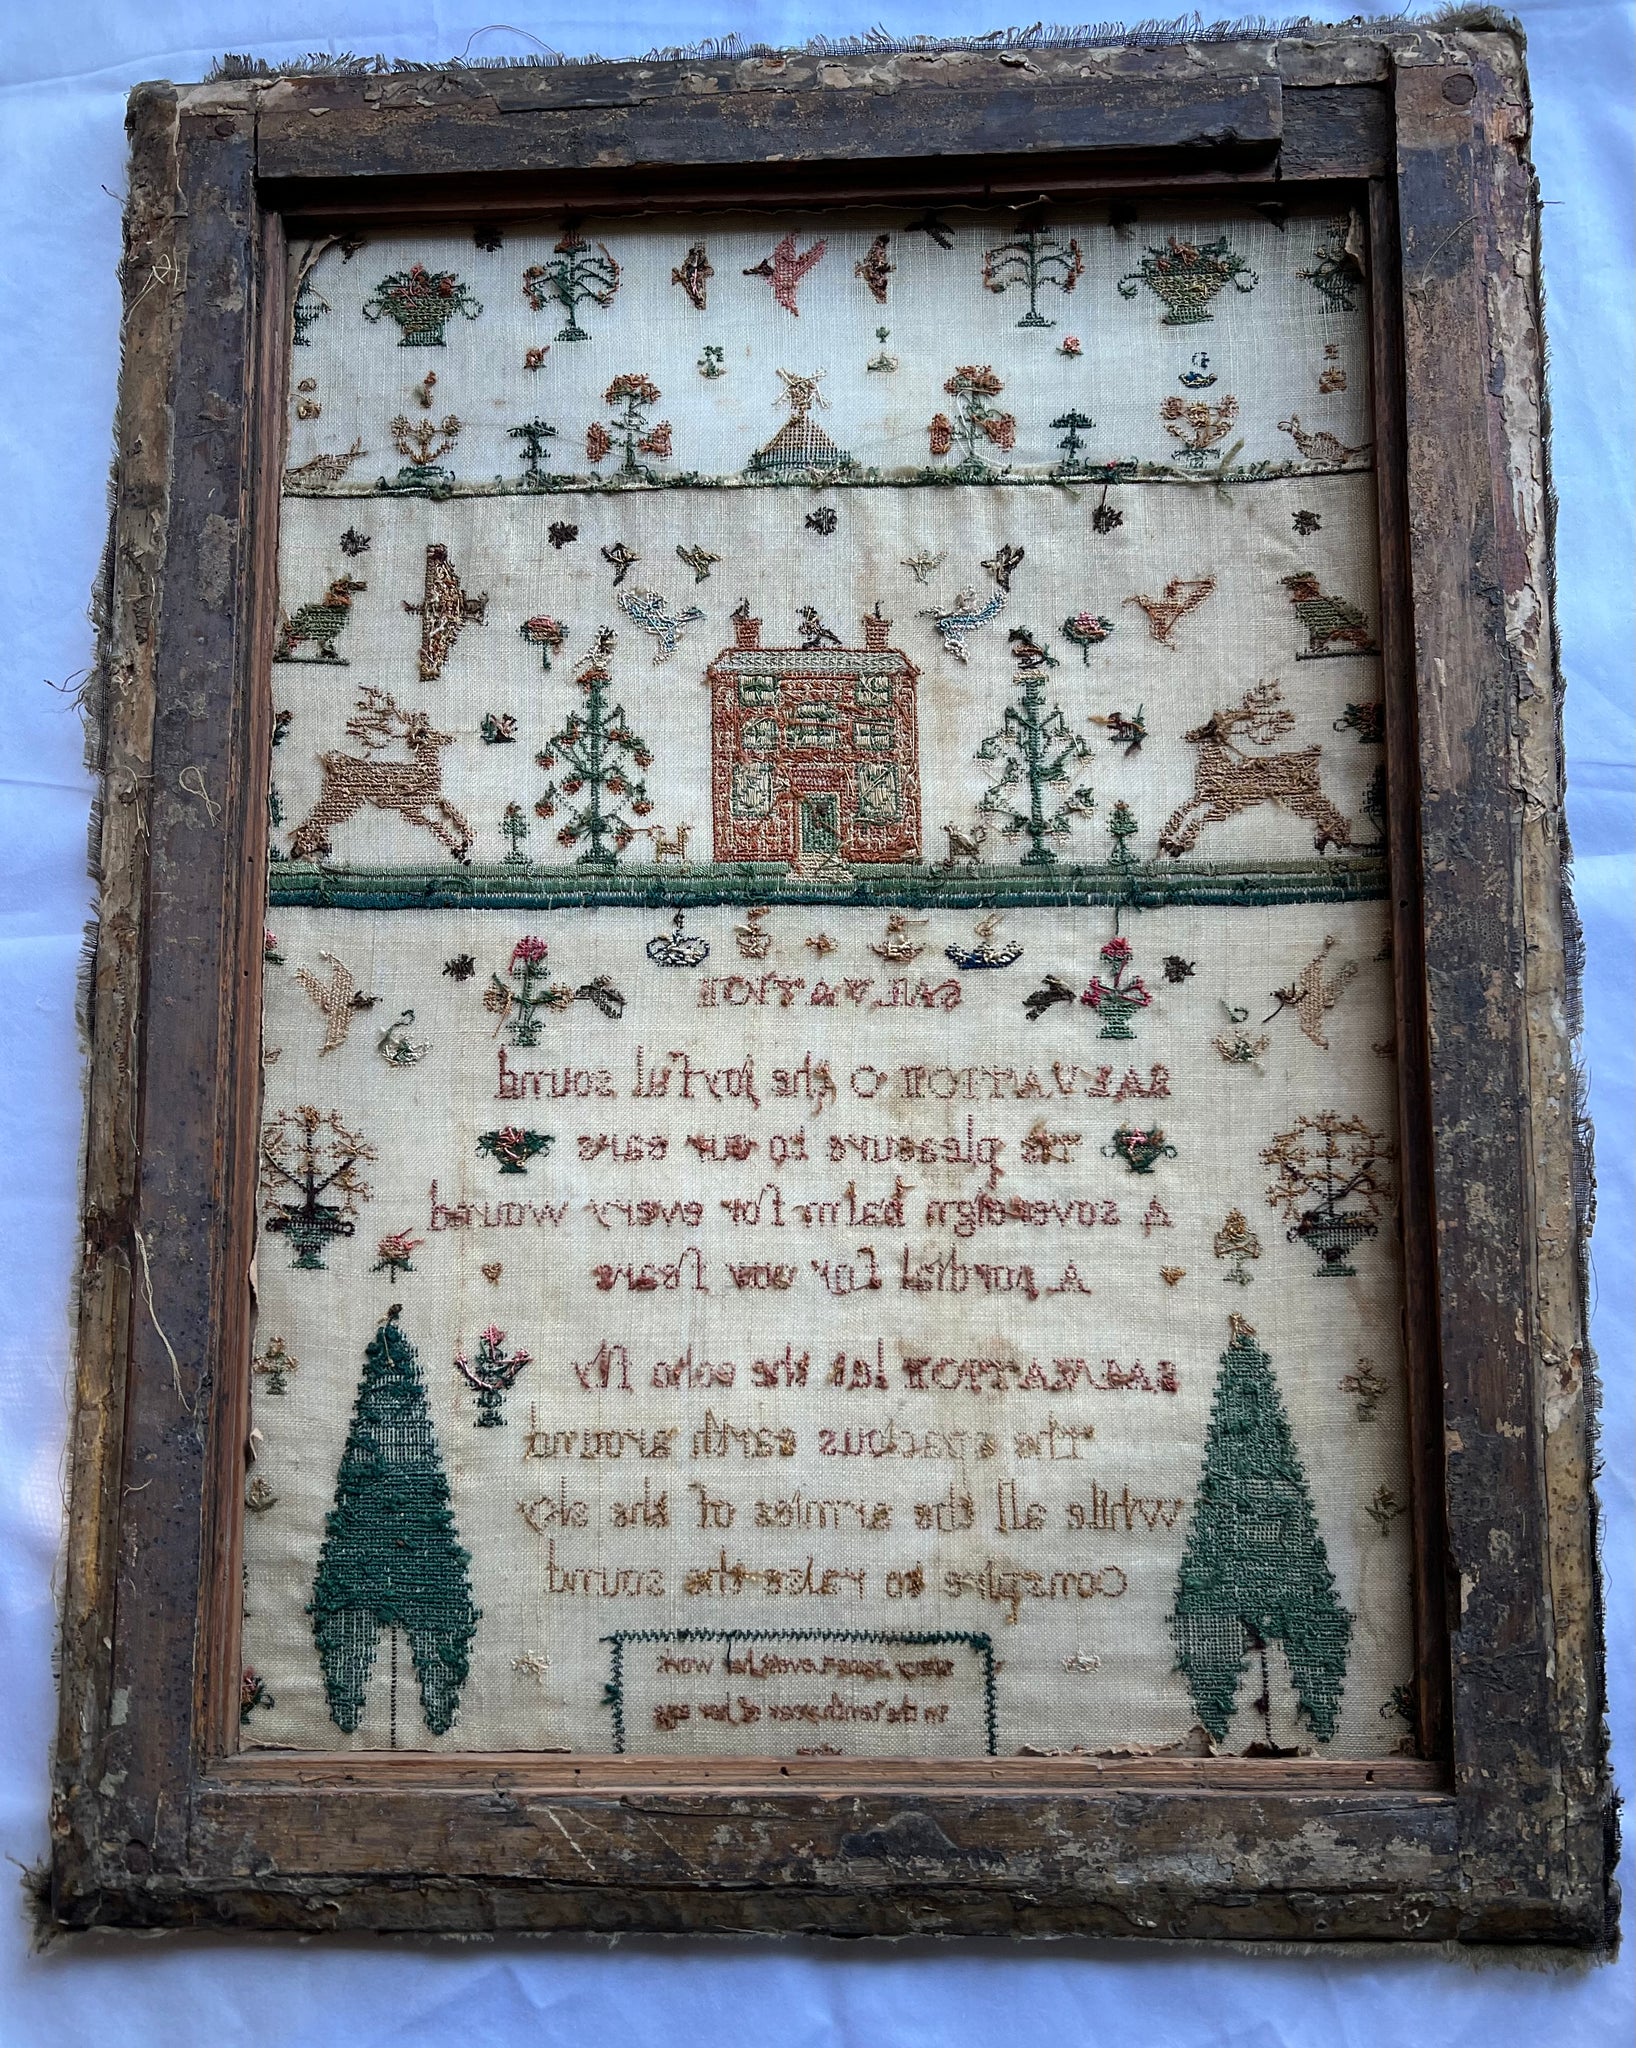 SALVATION
SALVATION O the joyful sound
Tis pleasure to our ears
A sovereign balm for every wound
A cordial for our fears
SALVATION let the echo fly
The spacious earth around
While all the armies of the sky
Conspire to raise the sound
Mary her work
In the tenth year of her age